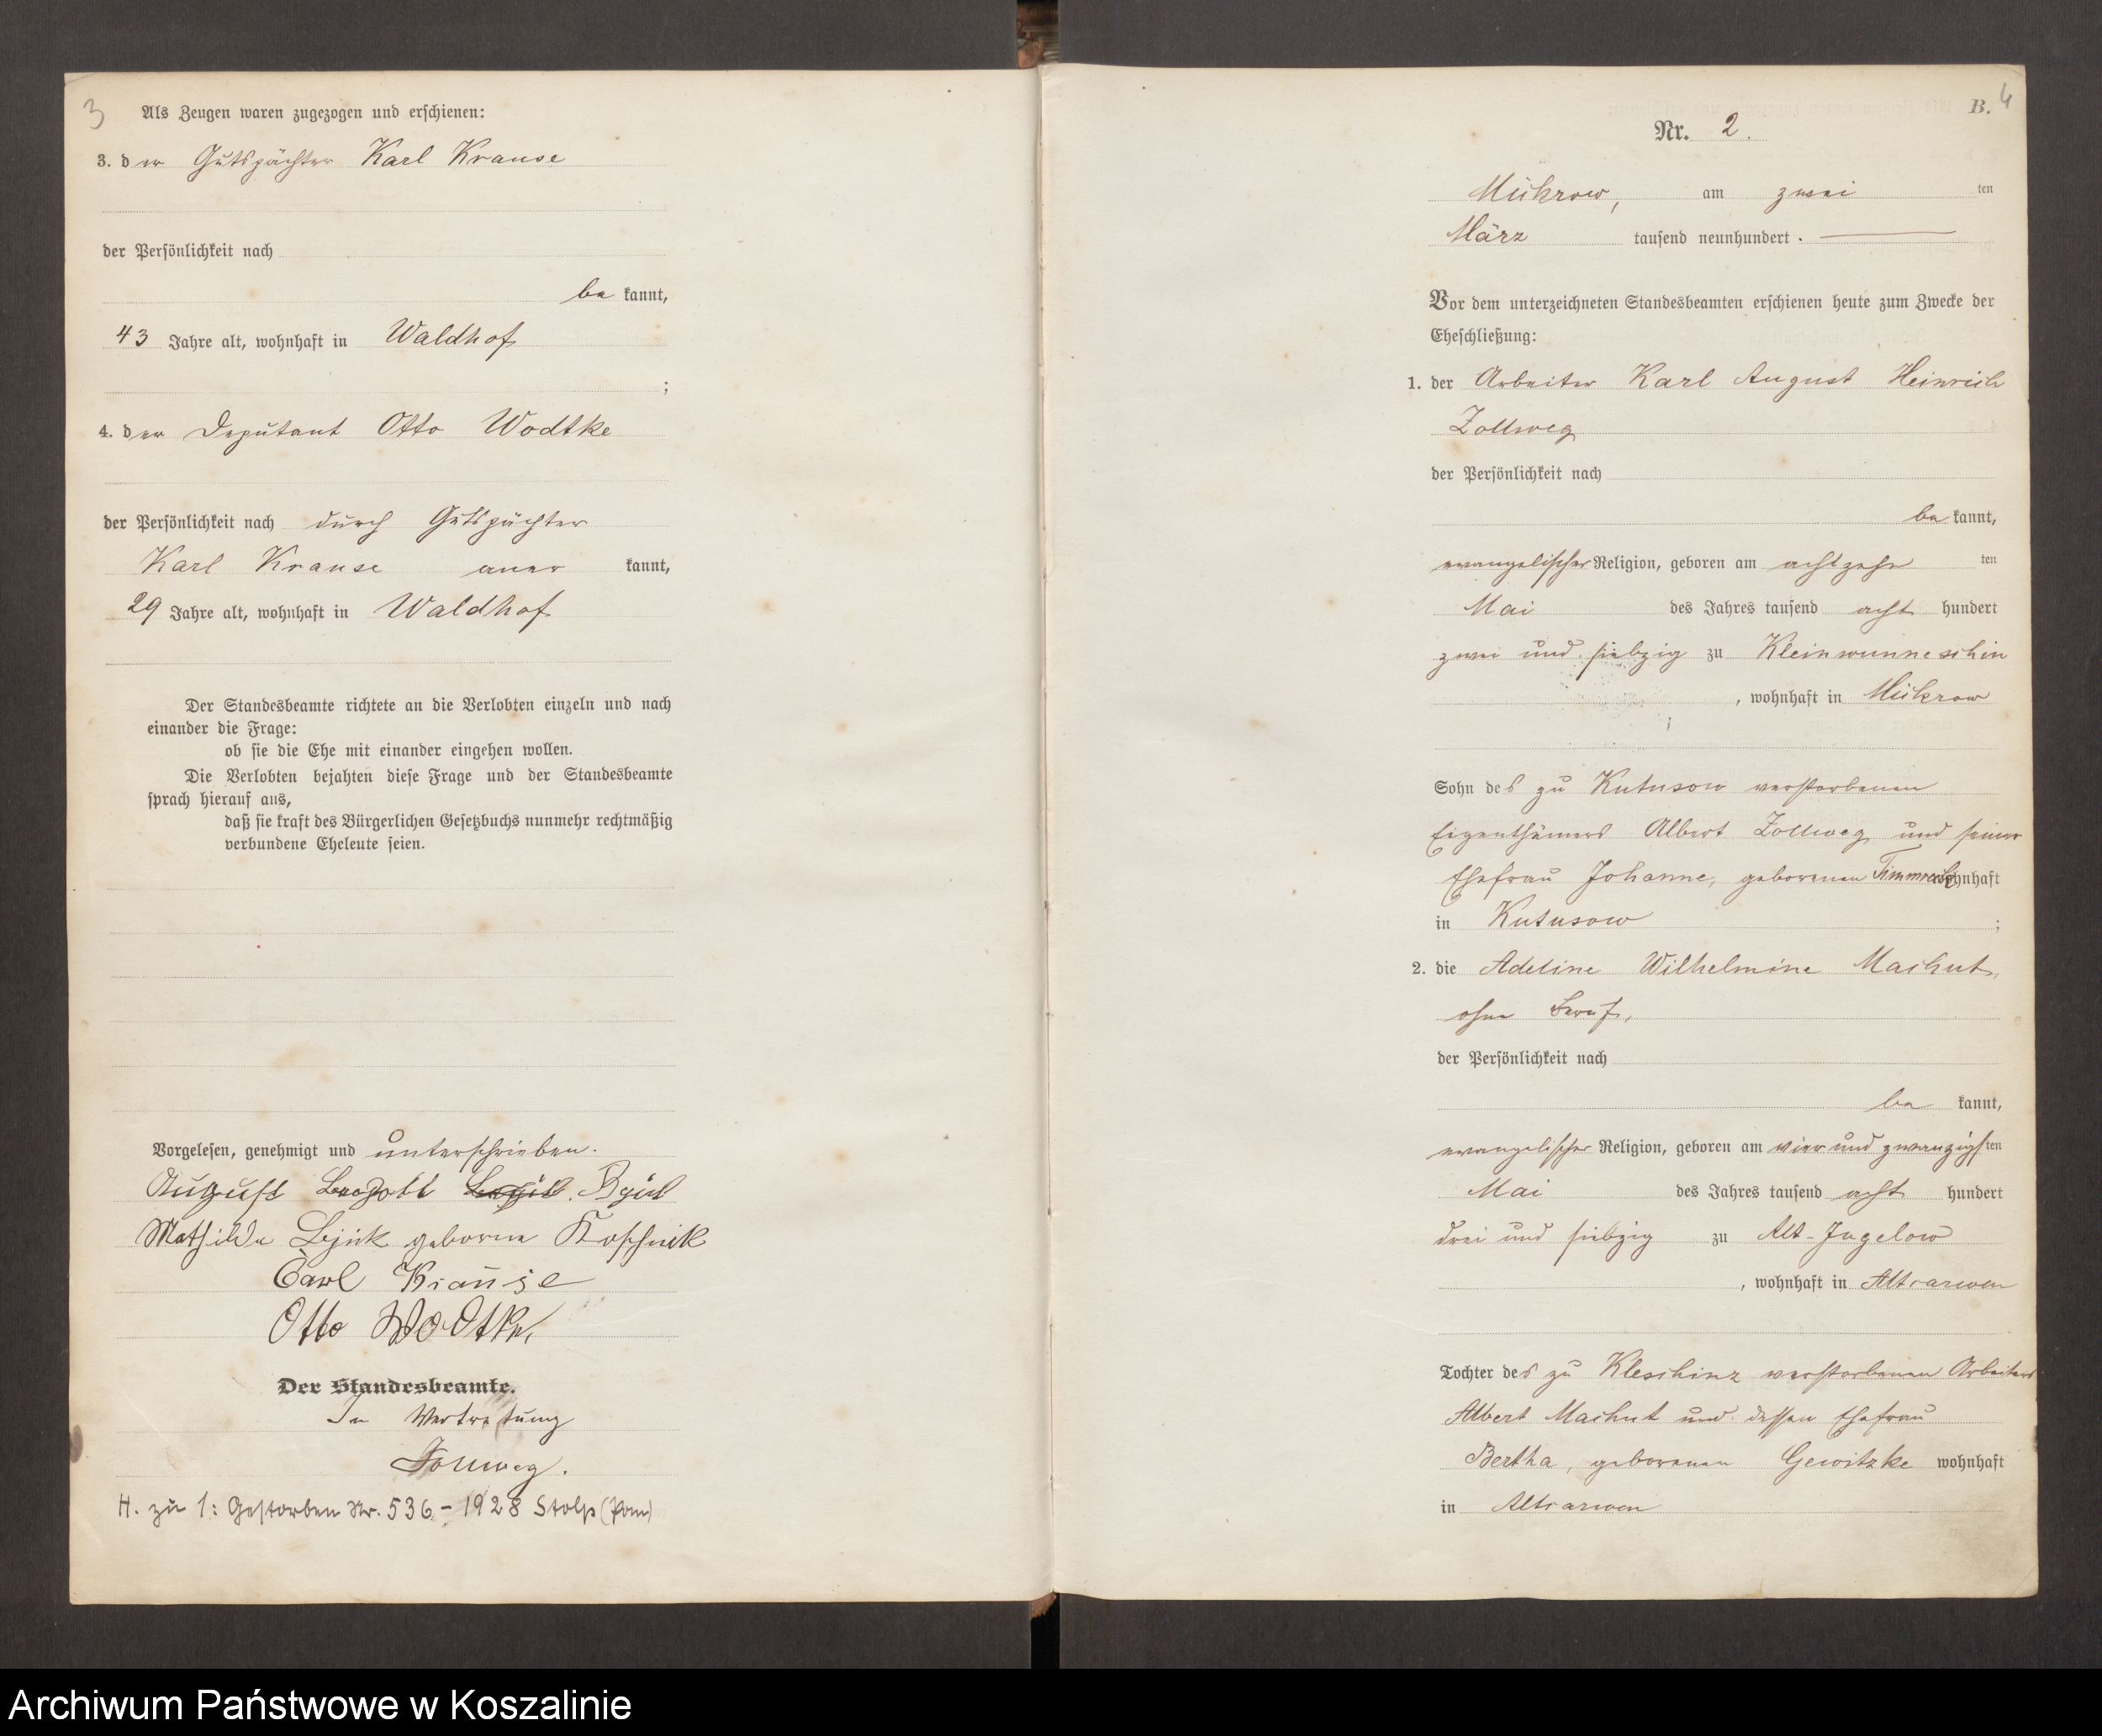 3
Als Zeugen waren zugezogen und erschienen:
3. der Gutspächter Karl Krause
der Persönlichkeit nach
be kannt,
43 Jahre alt, wohnhaft in Waldhof
;
4. der Deputant Otto Wodtke
der Persönlichkeit nach durch Gutspächter
Karl Krause aner kannt,
29 Jahre alt, wohnhaft in Waldhof
Der Standesbeamte richtete an die Verlobten einzeln und nach
einander die Frage:
ob sie die Ehe mit einander eingehen wollen.
Die Verlobten bejahten diese Frage und der Standesbeamte
sprach hierauf aus,
daß sie kraft des Bürgerlichen Gesetzbuchs nunmehr rechtmäßig
verbundene Eheleute seien.
Vorgelesen, genehmigt und unterschrieben.
August
Mathilde geborne Koschnik
Carl Krause
Otto Wodtke
Der Standesbeamte.
In Vertretung
Zollweg.
H. zu 1: Gestorben Nr. 536 - 1928 Stolp (Pom)
B. 4
Nr. 2.
Mickrow, am zwei ten
März tausend neunhundert.
Vor dem unterzeichneten Standesbeamten erschienen heute zum Zwecke der
Eheschließung:
1. der Arbeiter Karl August Heinrich
Zollweg
der Persönlichkeit nach
be kannt,
evangelischer Religion, geboren am achtzehn ten
Mai des Jahres tausend acht hundert
zwei und siebzig zu Kleinwunneschin
, wohnhaft in Mickrow
Sohn des zu Kutusow verstorbenen
Eigenthümers Albert Zollweg und seiner
Ehefrau Johanne, geborenen wohnhaft
in Kutusow ;
2. die Adeline Wilhelmine Machut,
ohne Beruf,
der Persönlichkeit nach
be kannt,
evangelischer Religion, geboren am vier und zwanzigsten
Mai des Jahres tausend acht hundert
drei und siebzig zu Alt-Jugelow
, wohnhaft in Altcarwen
Tochter des zu Kleschinz verstorbenen Arbeiters
Albert Machut und dessen Ehefrau
Bertha, geborenen Gewitzke wohnhaft
in Altcarwen
Archiwum Państwowe w Koszalinie